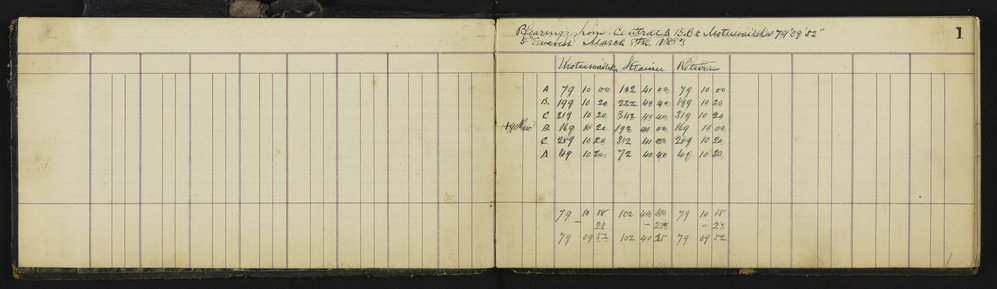 1
Bearings from Central A B.B to Motuwaireka 79°09'52"
March 8th 1883
Motuwaireka Strainer Return
A 79 10 00 102 41 00 79 10 00
B. 199 10 20 222 40 40 199 10 20
C 319 10 20 342 40 40 319 10 20
B 169 10 20 192 40 00 169 10 00
C. 289 10 20 312 41 00 289 10 20
A 49 10 20 72 40 40 49 10 20
79 10 18 102 40 79 10 18
— 28 — — 28
79 09 52 102 40 25 79 09 52